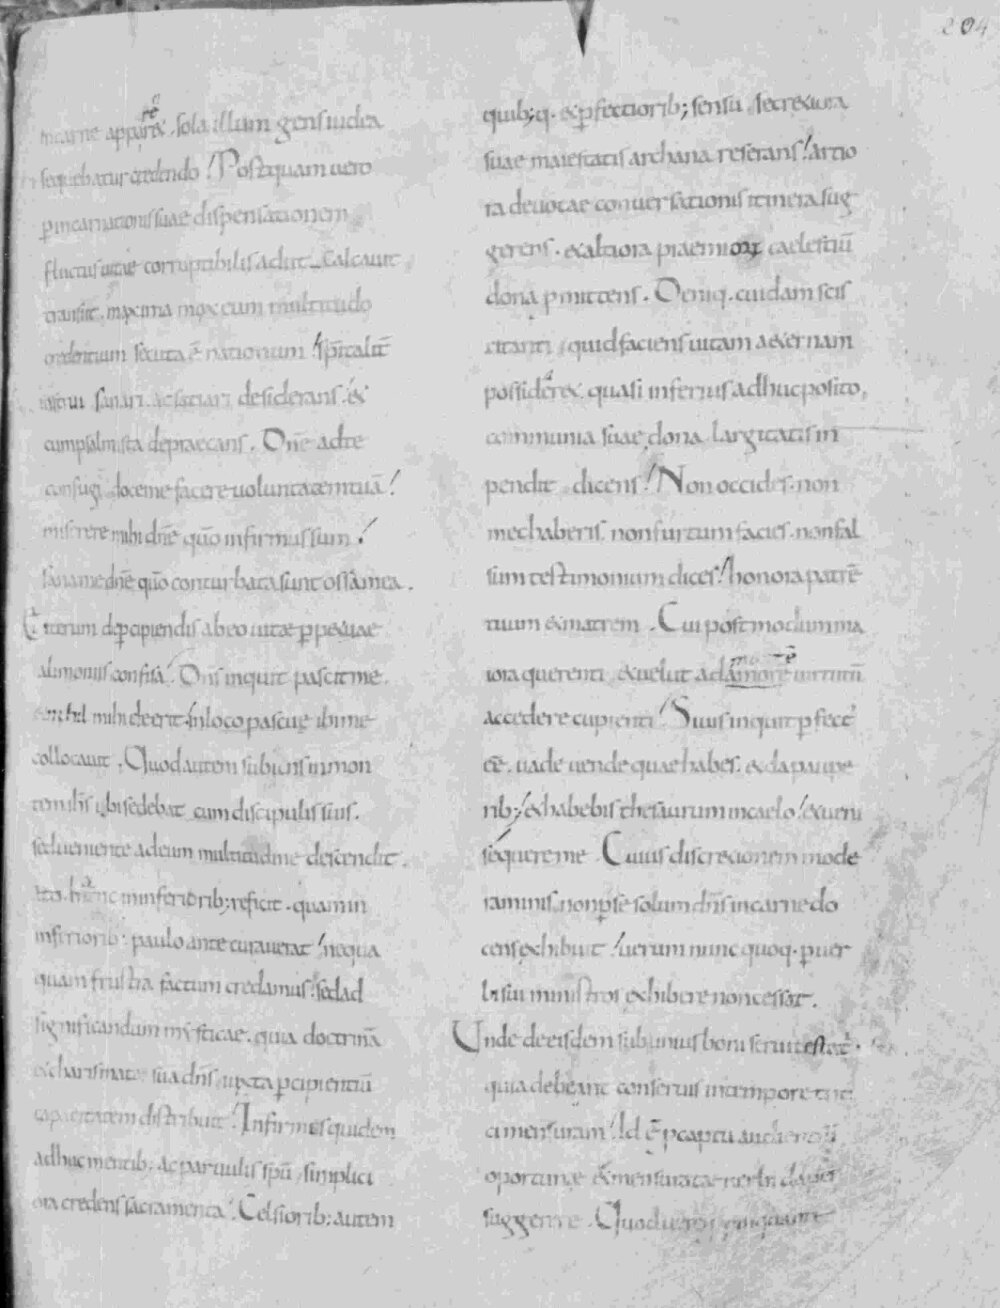 204
incarne apparer&. sola illum gens iudea
sequebatur credendo! Postquam uero
p incarnationis suae dispensationem
fluctus uitae corruptibilis adiit. Calcauit
transiit. maxima mox eum multitudo
credentium secuta ē nationum! spiritalit̄
sanari. ac satiari desiderans. &
cumpsalmista depraecans. Dn̄e adte
confugi doceme facere uoluntatemtuā!
miserere mihi dn̄e qūo infirmus sum!
saname dn̄e qūo conturbata sunt ossa mea.
Et iterum depcipiendis abeo uitae ppetuae
alimoniis confisa! Dn̄s inquit pascit me.
& nihil mihi deerit! in loco pascuę ibi me
collocauit. Quod autem subiens in mon
tem dn̄s ubi sedebat cum discipulis suis.
sed ueniente ad eum multitudine descendit.
hanc in inferiorib; reficit. quam in
inferiorib; paulo ante curauerat! nequa
quam frustra factum credamus! sed ad
significandum mysticae. quia doctrinā
& charismata sua dn̄s iuxta pcipientiū
capacitatem distribuit! Infirmis quidem
adhuc mentib; ac paruulis spū! simplici
ora credens sacramenta! Celsiorib; autem
quib;q. & pfectiorib; sensu. secretiora
suae maiestatis archana referans! artio
ra deuotae conuersationis itinera sug
gerens. & altiora praemiorū caelestiū
dona pmittens. Deniq. cuidam scis
citanti quid faciens uitam aeternam
possider&. quasi inferius adhuc posito,
communia suae dona largitatis in
pendit dicens! Non occides. non
mechaberis. non furtum facies. non fal
sum testimonium dices! honora patrē
tuum & matrem. Cui postmodum ma
iora querenti & uelut ad amorē uirtutū
accedere cupienti! Siuis inquit pfect'
eē. uade uende quae habes. & da paupe
rib;! & habebis thesaurum in caelo! & ueni
sequere me. Cuius discretionem mode
raminis. non p se solum dn̄s in carne do
cens exhibuit! uerum nunc quoq. puer
bi sui ministros exhibere non cessat.
Unde de eisdem sub unius boni serui testat'.
quia debeant conseruis in tempore tritici
ci mensuram! Id ē p captu audientiū
oportunae & mensuratae uerba dei
suggerere. Quod uero